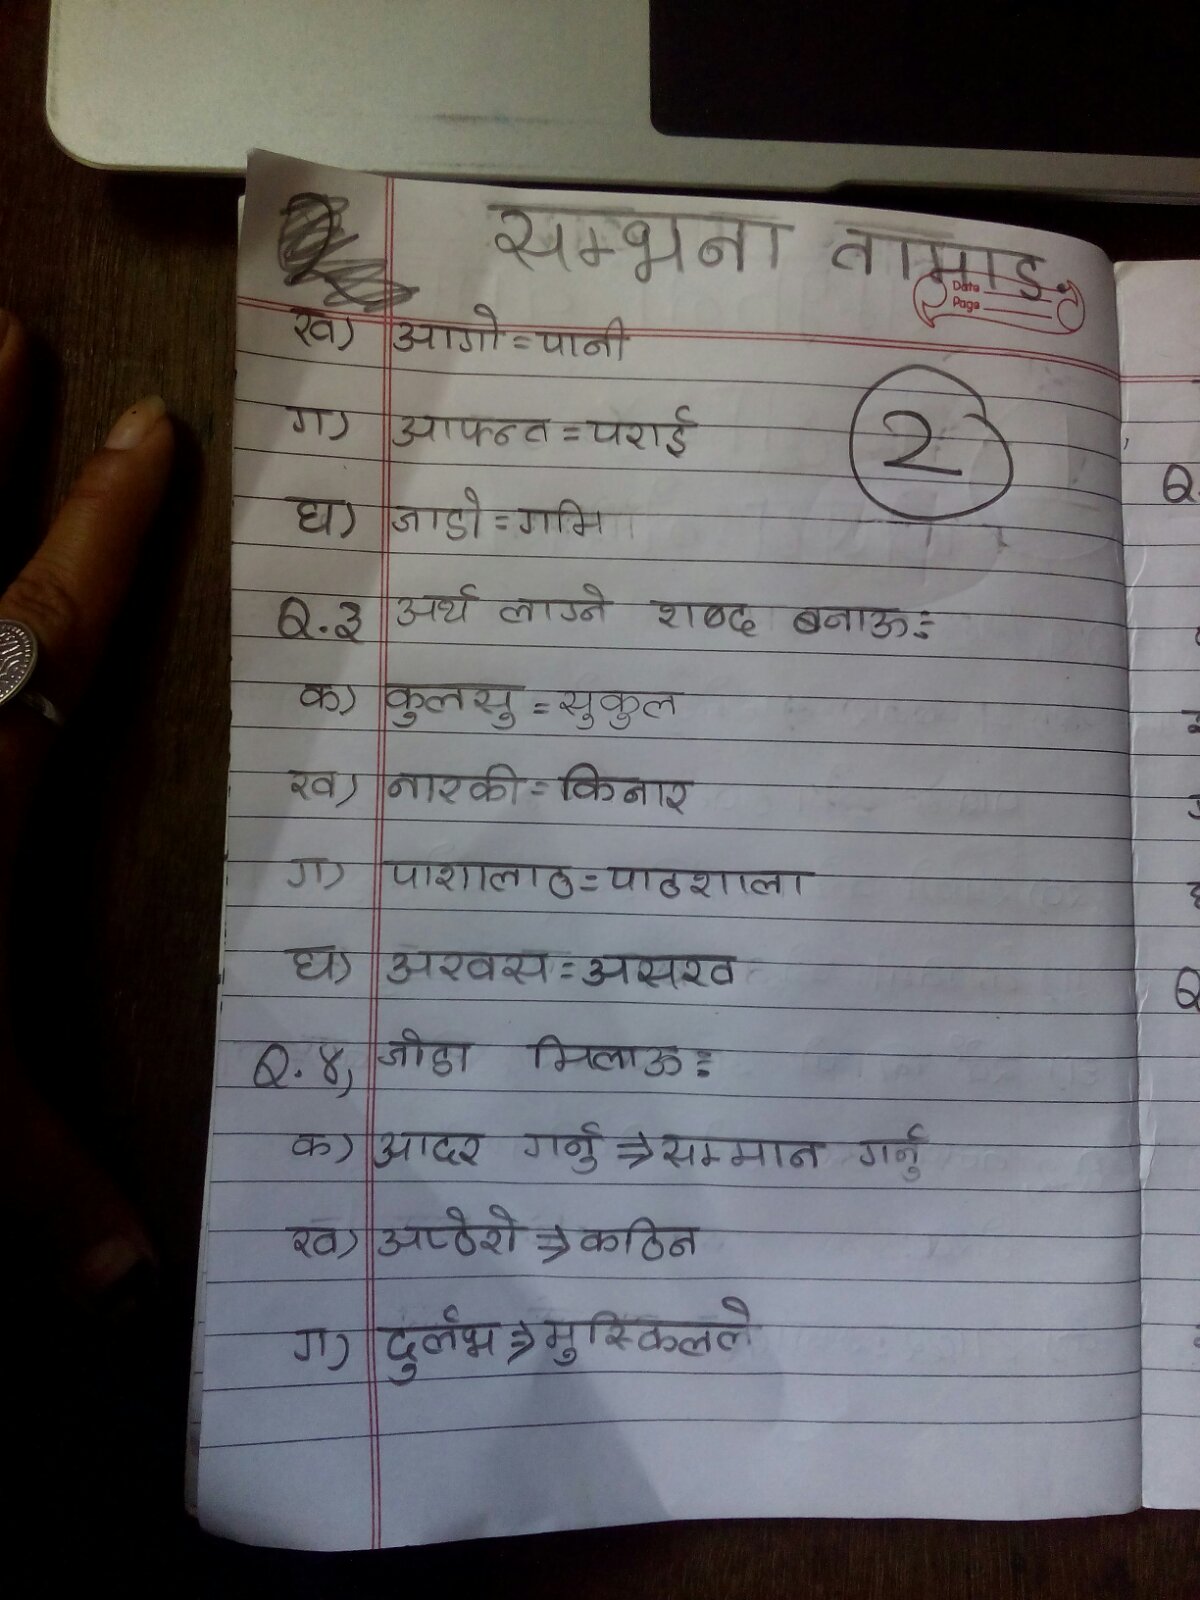 सम्झना तामाङ
Date
Page
ख) आगो=पानी
ग) आफन्त=पराई
2
घ) जाडो=गर्मि
Q.३ अर्थ लाग्ने शब्द बनाऊ:
क) कुलसु=सुकुल
ख) नारकी=किनार
ग) पाशालाठ=पाठशाला
घ) अरवस=असरव
Q.४, जोडा मिलाऊ:
क) आदर गर्नु⇒सम्मान गर्नु
ख) अप्ठेरो⇒कठिन
ग) दुर्लभ⇒मुस्किलले